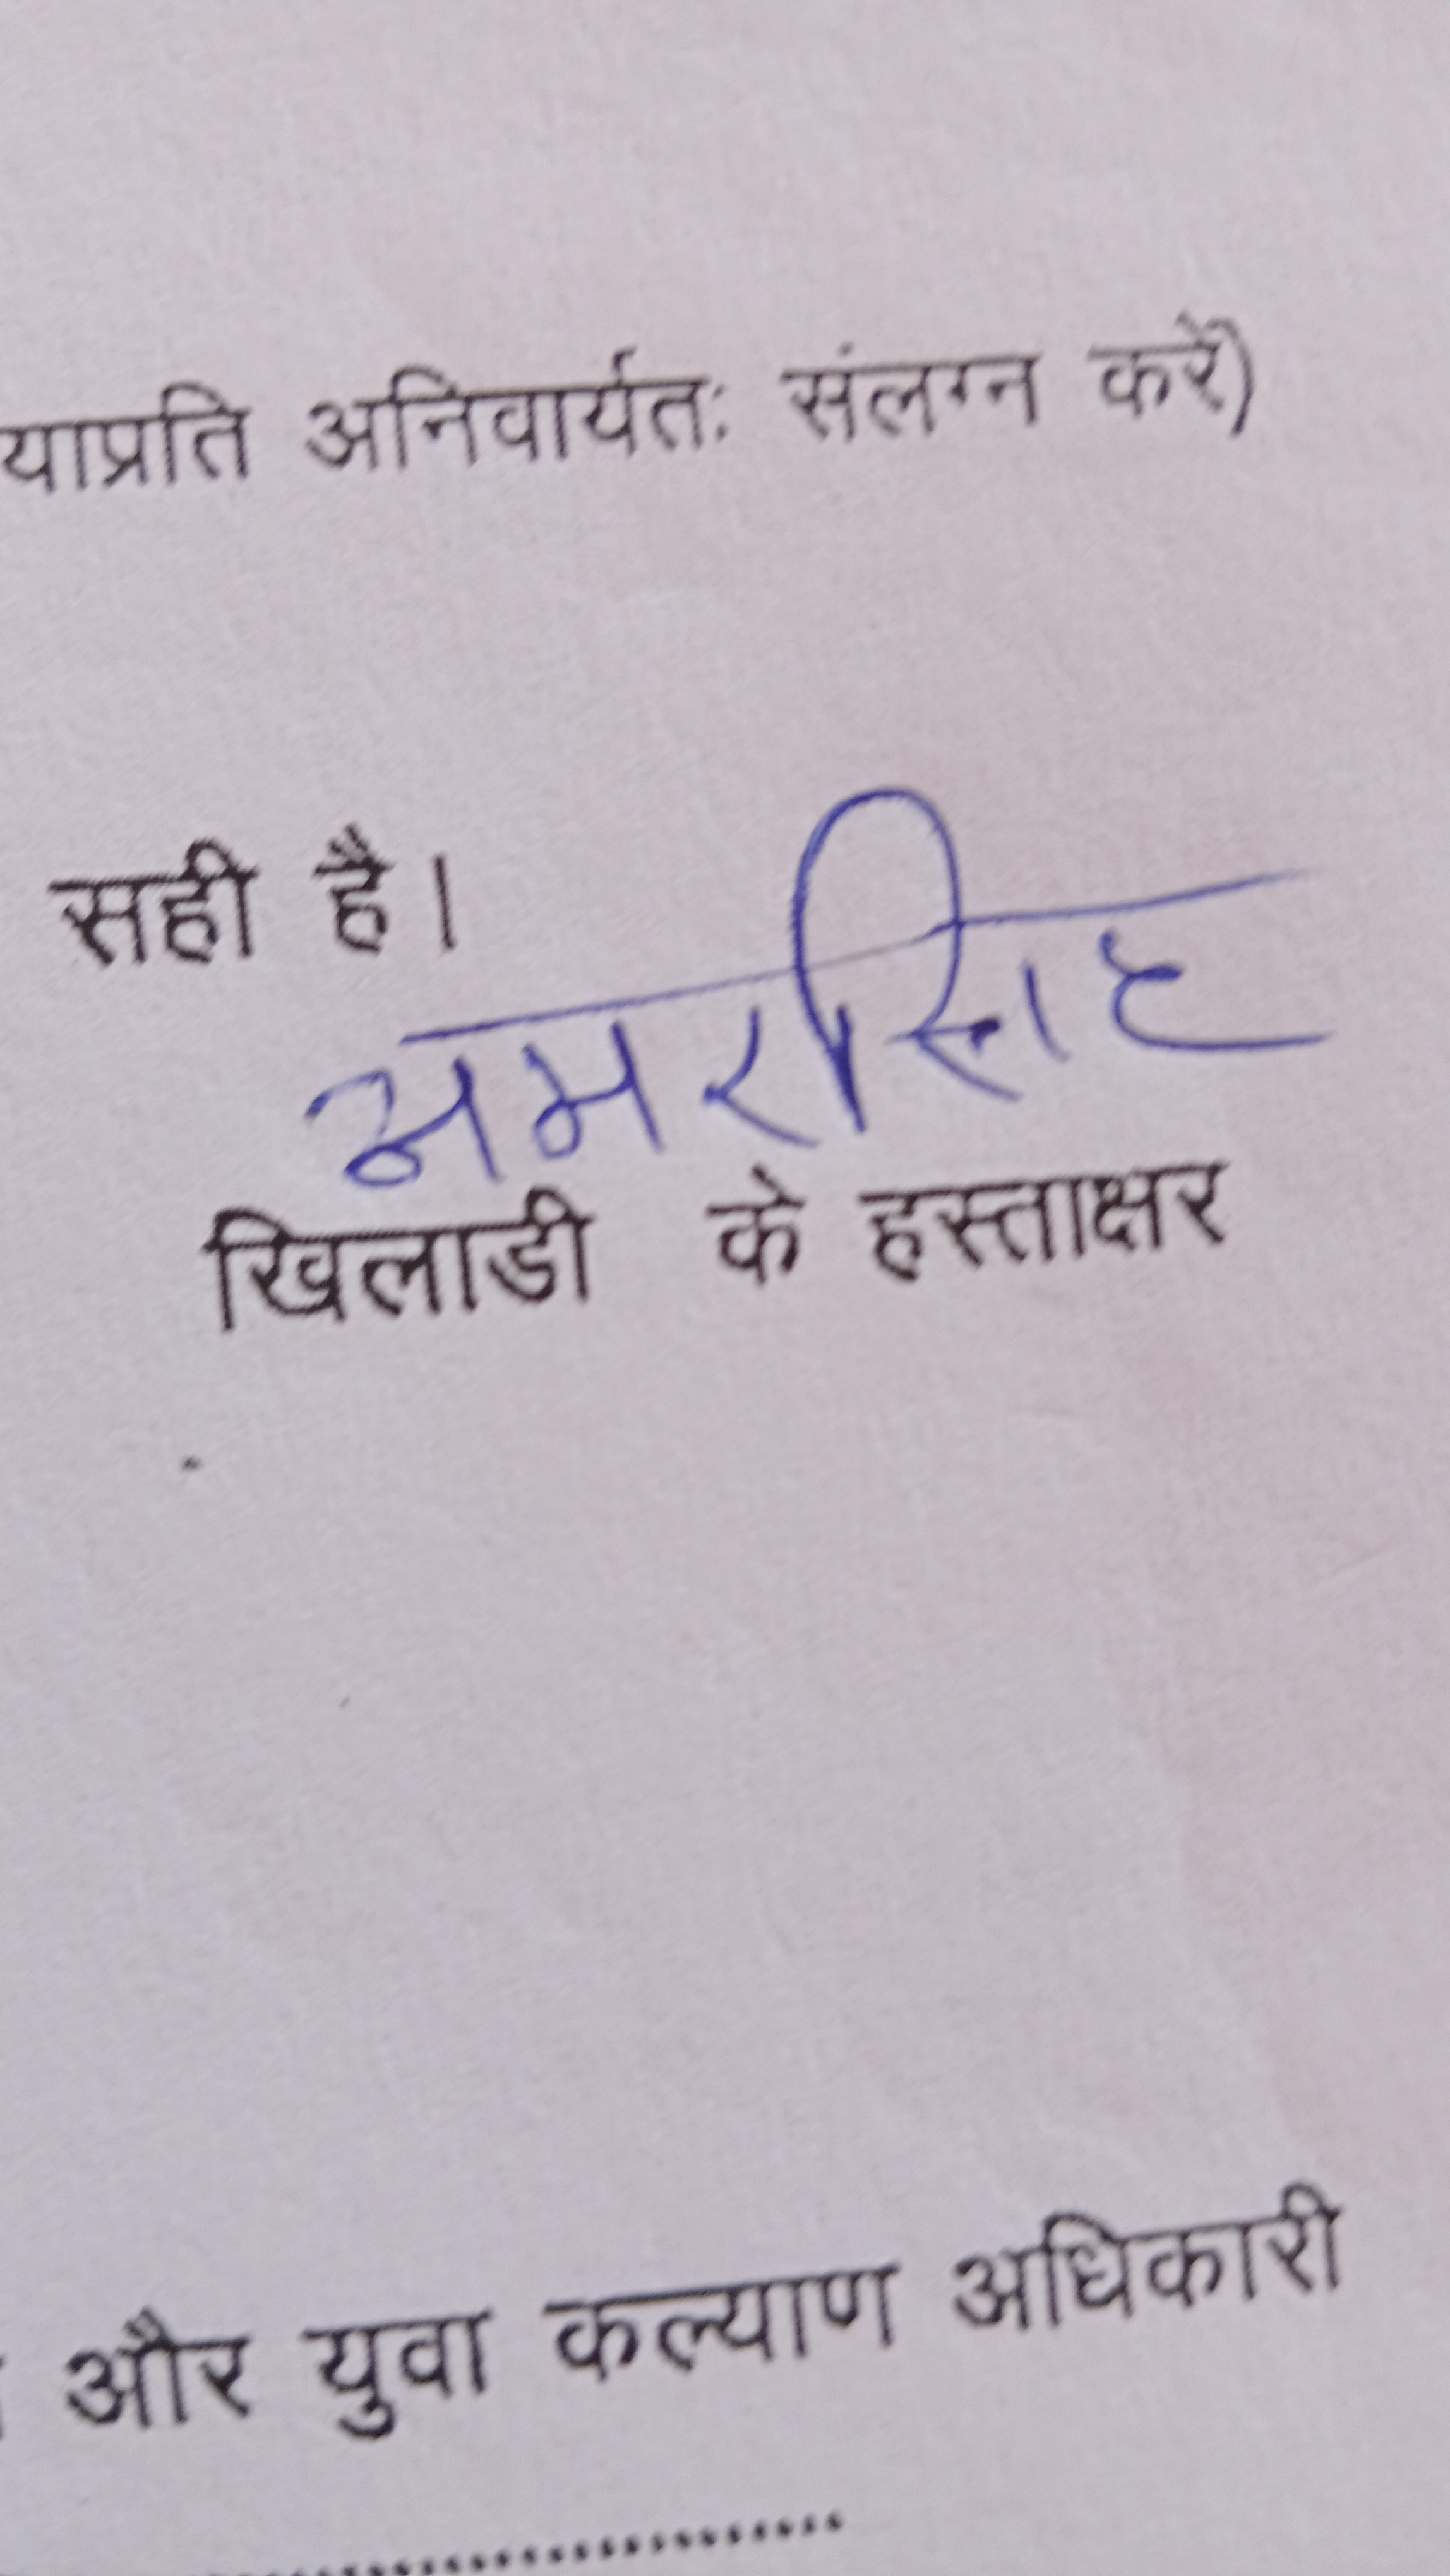 याप्रति अनिवार्यतः संलग्न करें)
सही है।
अमर सिंह
खिलाडी के हस्ताक्षर
और युवा कल्याण अधिकारी
................................